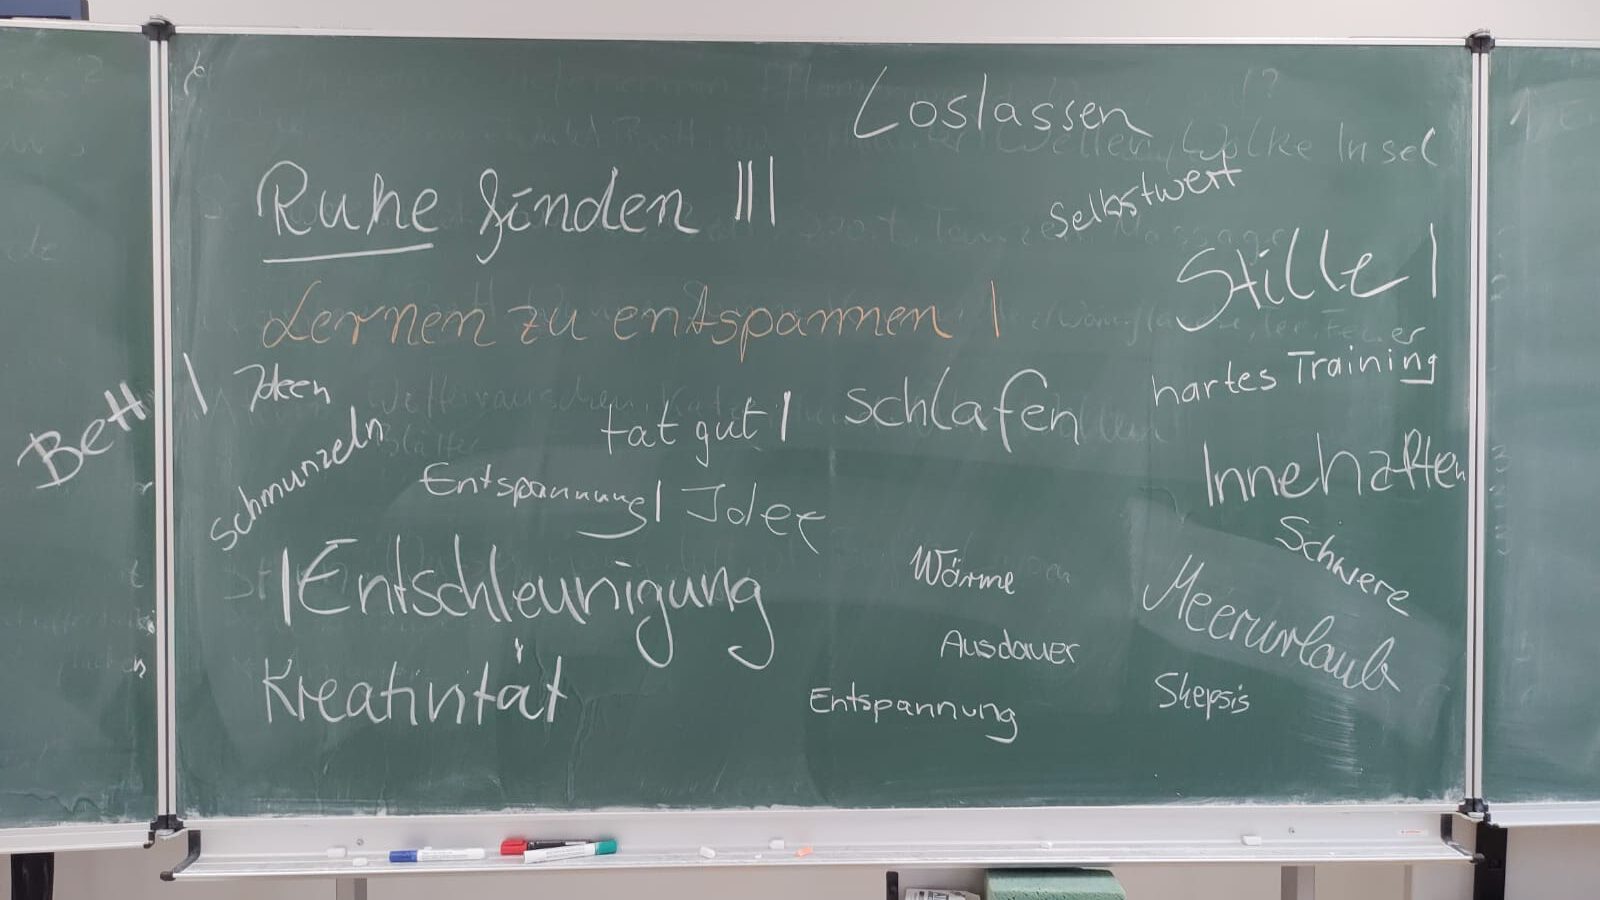 Loslassen
Wellen, Wolke Insel
Ruhe finden |||
Selbstwert
Stille |
Lernen zu entspannen |
hartes Training
Bett |
Ideen
schlafen
tat gut |
schmunzeln
Innehalten
Entspannung | Idee
Schwere
| Entschleunigung
Wärme
Meerurlaub
Ausdauer
Kreativität
Entspannung
Skepsis